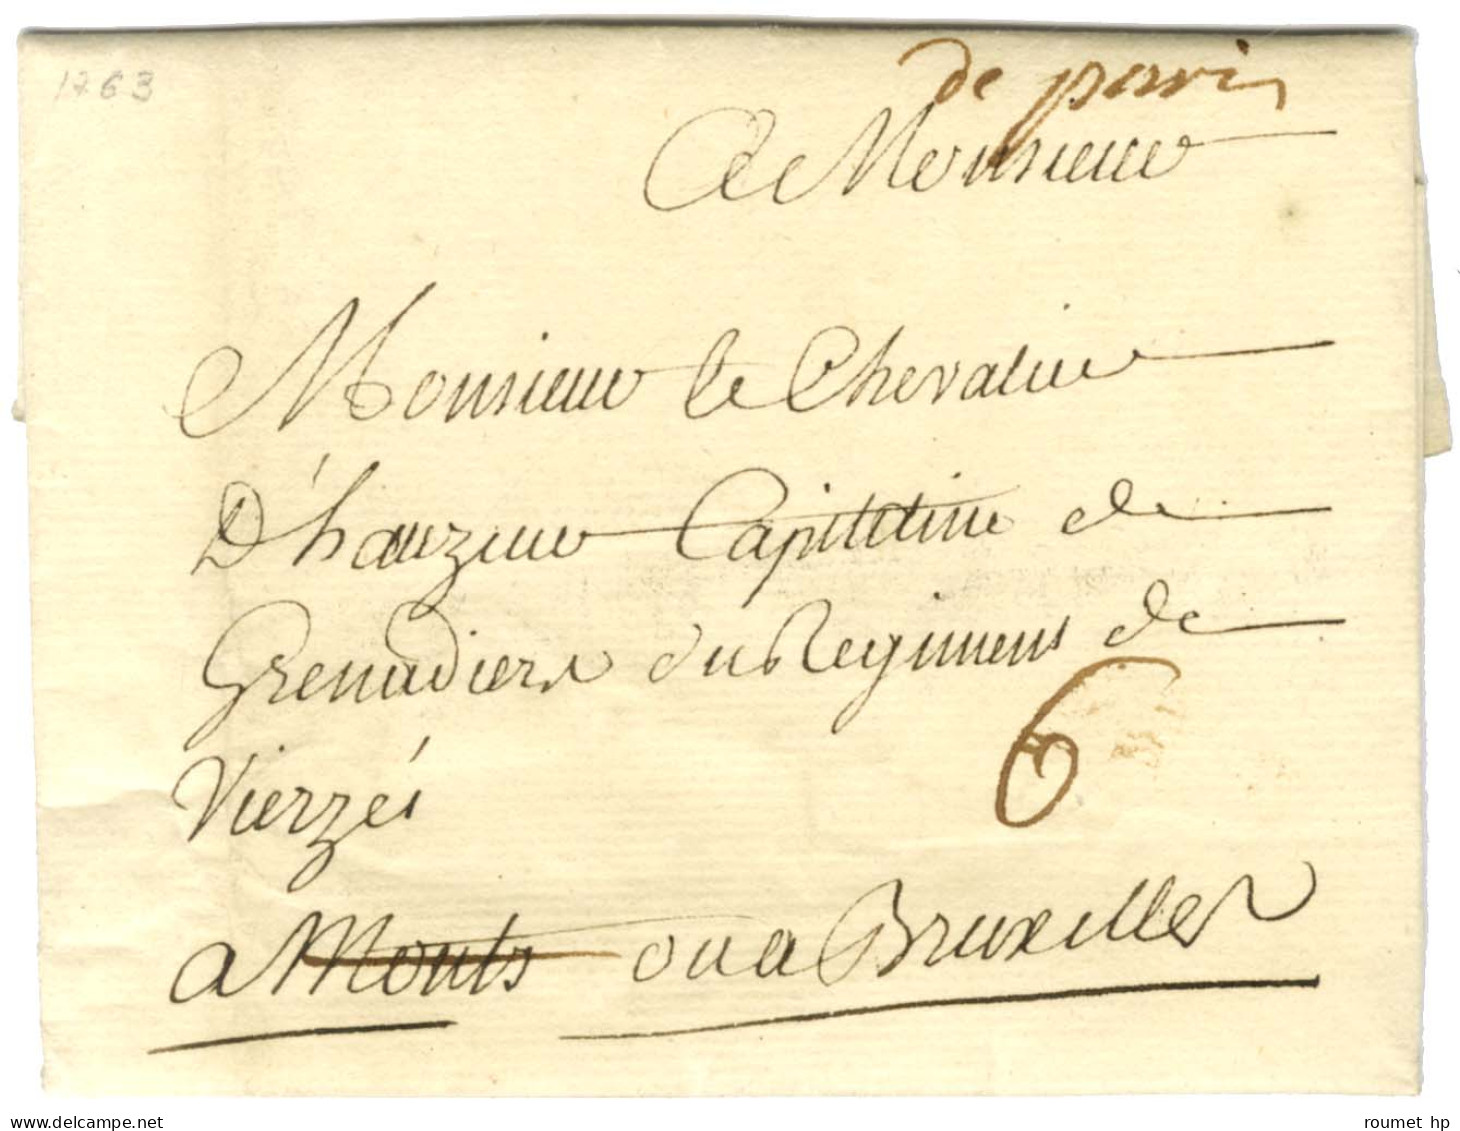 1763
de paris
A Monsieur
Monsieur le Chevalier
D'hauzeur Capititine de
Grenadiers du Regiment de
Vierzés
a Monts ou a Bruxelles
6
roumet hp
delcampe.net